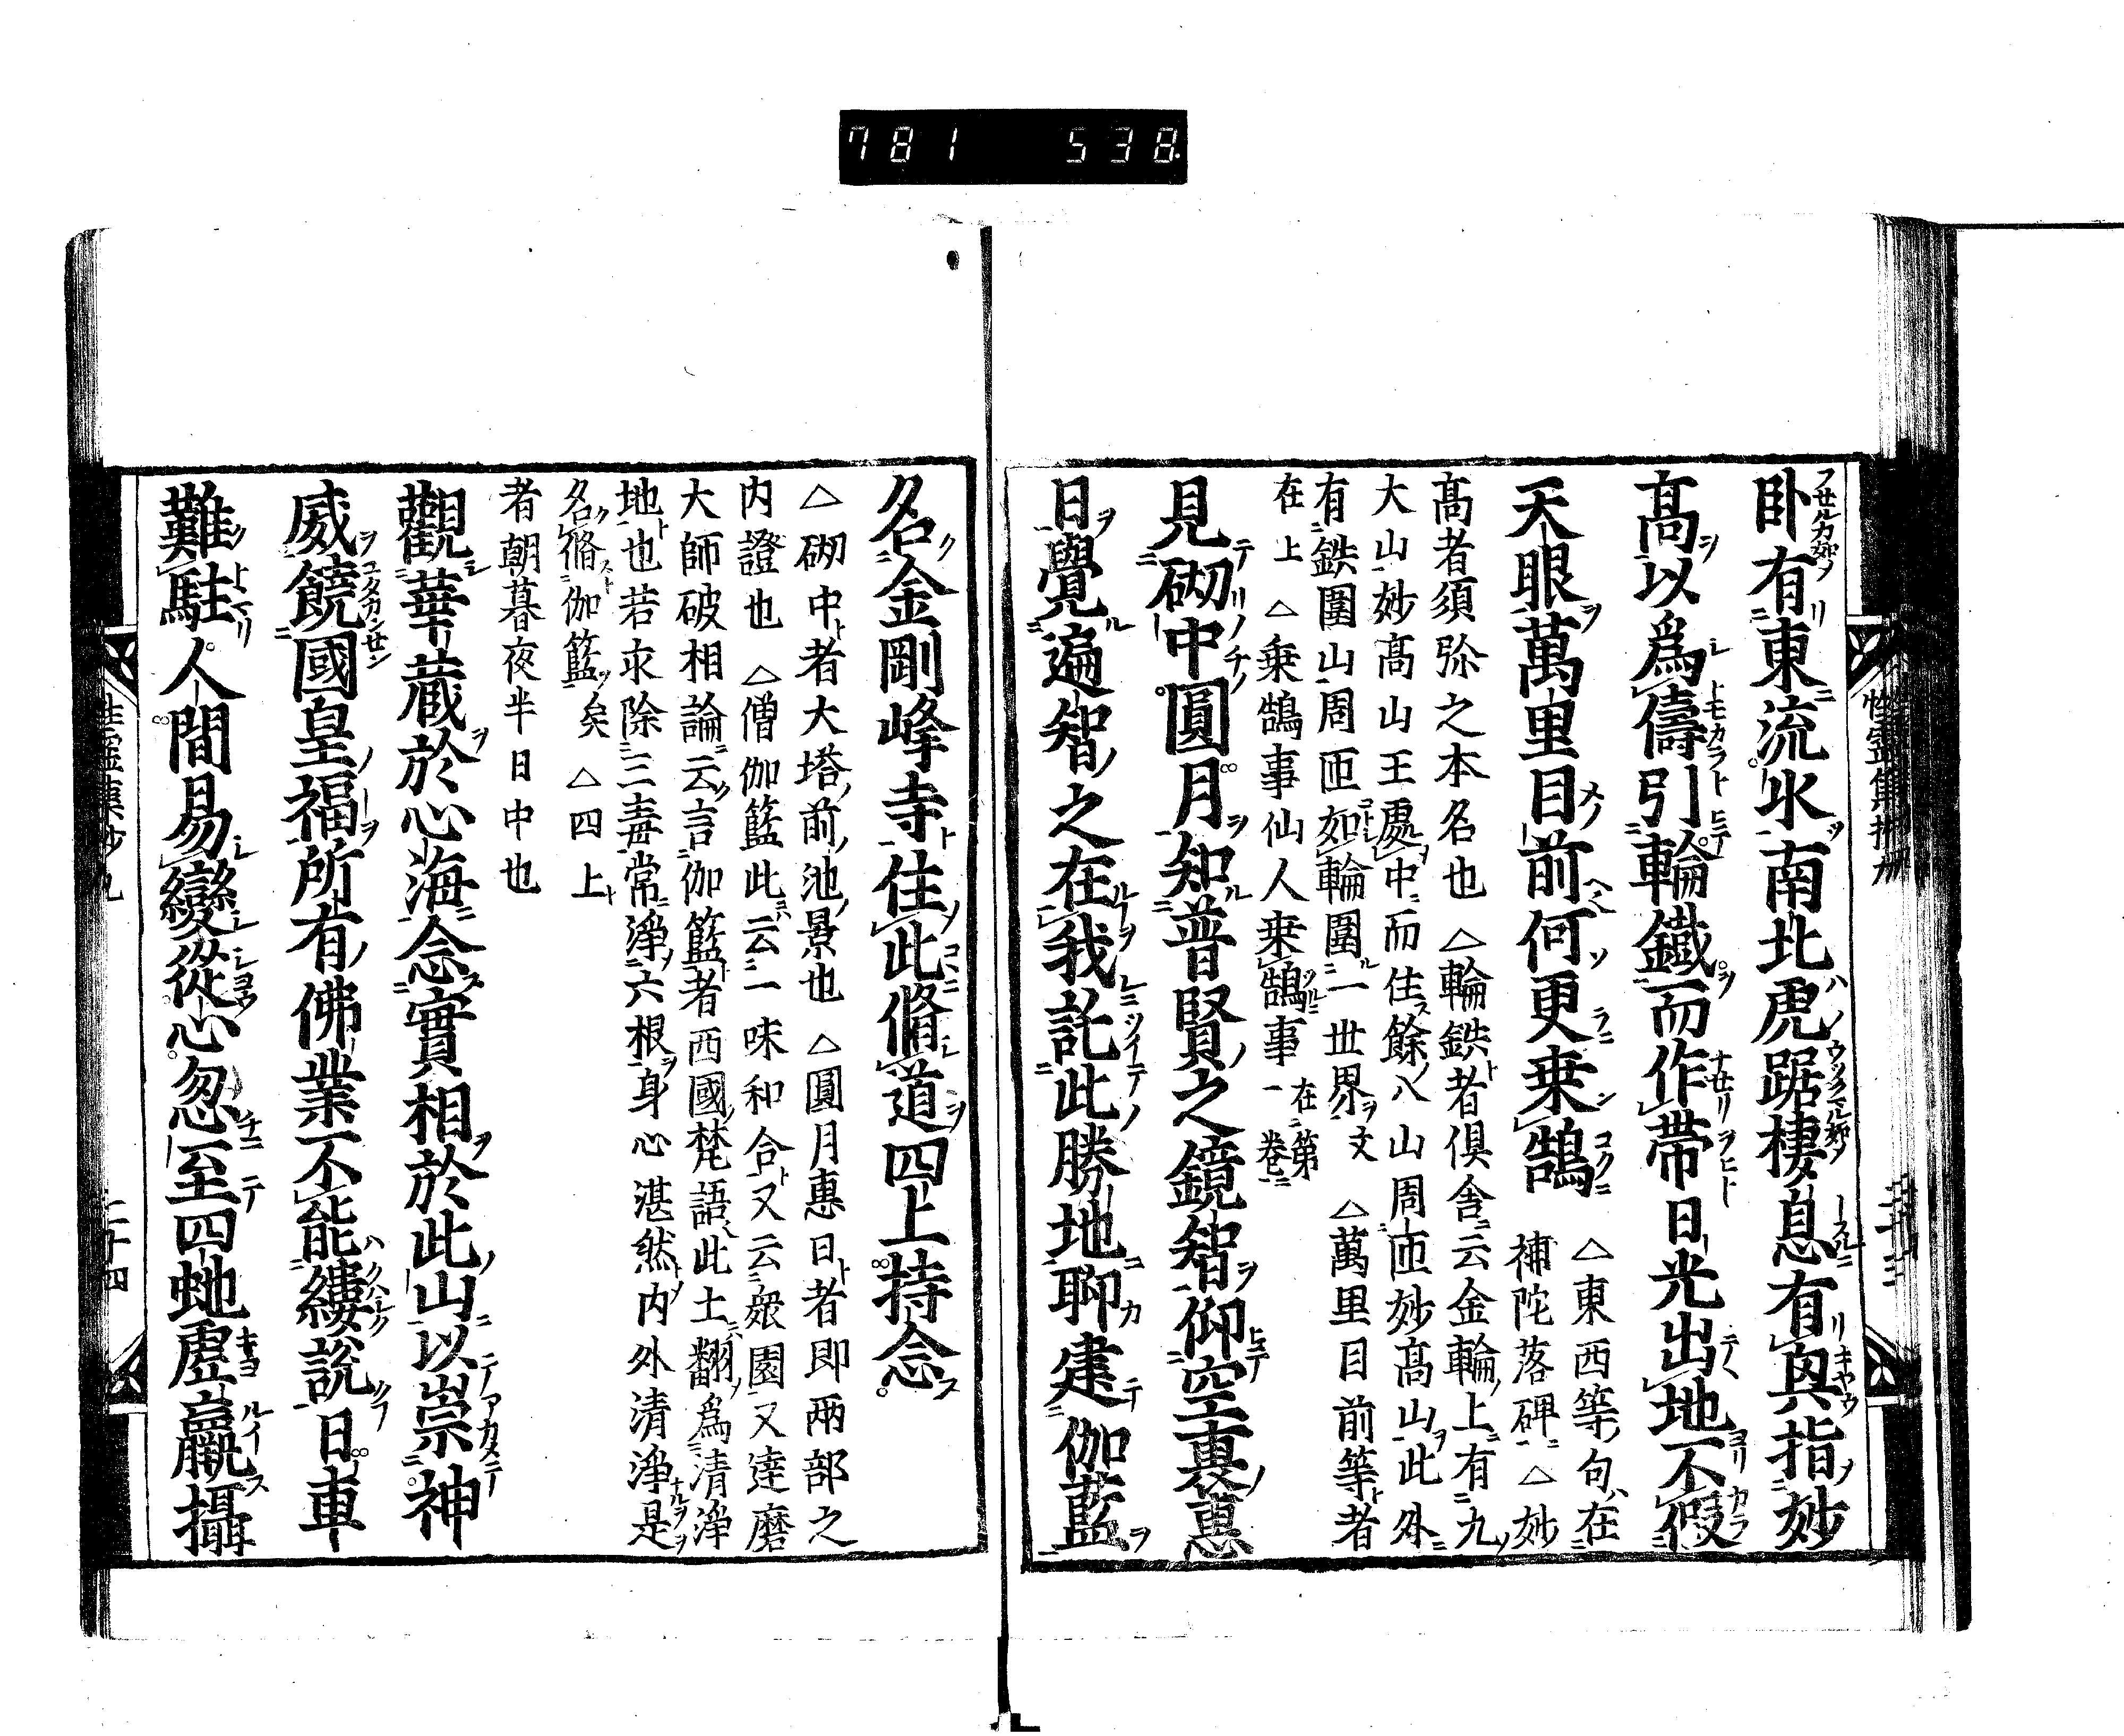 781 538.
卧有東流水南北虎踞棲息有與指妙
高以為儔引輪鐵而作帶日光出地不假
天眼萬里目前何更乗鵠 △東西等句在
補陀落碑△妙
高者須弥之本名也 △輪鉄者倶舎云金輪上有九
大山妙高山王處中而住餘八山周匝妙高山此外
有鉄圍山周匝如輪圍一世界文 △萬里目前等者
在上 △乗鵠事仙人乗鵠事一在第一卷
見砌中圓月知普賢之鏡智仰空裏惠
日覺遍智之在我託此勝地聊建伽藍
名金剛峰寺住此脩道四上持念
△砌中者大塔前池景也 △圓月惠日者即兩部之
内證也 △僧伽籃此云一味和合又云衆園又達磨
大師破相論云言伽籃者西國梵語此土翻為清淨
地也若求除三毒常淨六根身心湛然内外清淨是
名脩伽籃矣 △四上
者朝暮夜半日中也
觀華蔵於心海念實相於此山以崇神
威饒國皇福所有佛業不能縷説日車
難駐人間易變從心忽至四虵虚羸攝